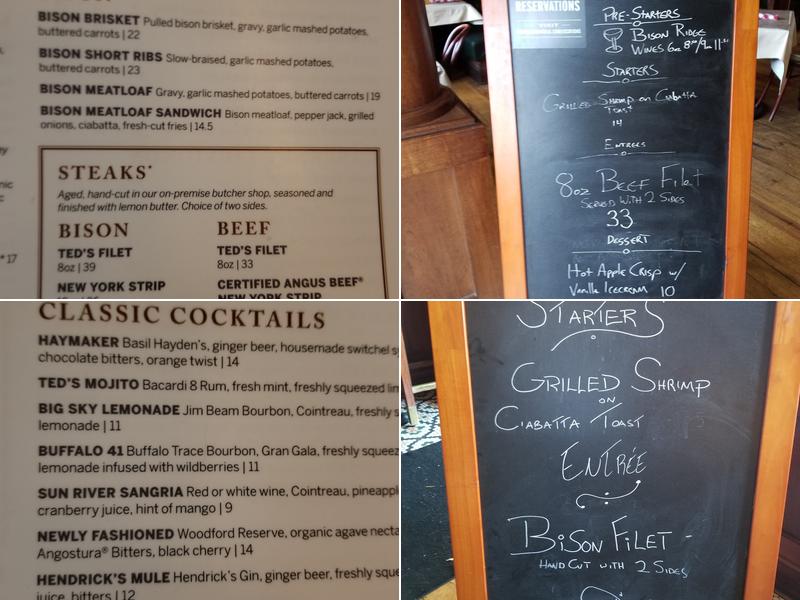 BISON BRISKET Pulled bison brisket, gravy, garlic mashed potatoes,
buttered carrots | 22
BISON SHORT RIBS Slow-braised, garlic mashed potatoes,
buttered carrots | 23
BISON MEATLOAF Gravy, garlic mashed potatoes, buttered carrots | 19
BISON MEATLOAF SANDWICH Bison meatloaf, pepper jack, grilled
onions, ciabatta, fresh-cut fries | 14.5
* 17
STEAKS*
Aged, hand-cut in our on-premise butcher shop, seasoned and
finished with lemon butter. Choice of two sides.
BISON
TED'S FILET
8oz | 39
NEW YORK STRIP
BEEF
TED'S FILET
8oz | 33
CERTIFIED ANGUS BEEF®
NEW YORK STRIP
RESERVATIONS
VISIT
PRE-STARTERS
BISON RIDGE
WINES 6oz
STARTERS
GRILLED SHRIMP on CIABATTA
TOAST
14
ENTREES
8oz BEEF FILET
SERVED WITH 2 SIDES
33
DESSERT
HOT APPLE CRISP w/
VANILLA ICECREAM 10
CLASSIC COCKTAILS
HAYMAKER Basil Hayden's, ginger beer, housemade switchel
chocolate bitters, orange twist | 14
TED'S MOJITO Bacardi 8 Rum, fresh mint, freshly squeezed
BIG SKY LEMONADE Jim Beam Bourbon, Cointreau, freshly
lemonade | 11
BUFFALO 41 Buffalo Trace Bourbon, Gran Gala, freshly
lemonade infused with wildberries | 11
SUN RIVER SANGRIA Red or white wine, Cointreau,
cranberry juice, hint of mango | 9
NEWLY FASHIONED Woodford Reserve, organic agave
Angostura® Bitters, black cherry | 14
HENDRICK'S MULE Hendrick's Gin, ginger beer, freshly
juice, bitters | 12
STARTERS
GRILLED SHRIMP
ON
CIABATTA TOAST
ENTRÉE
BISON FILET -
HAND CUT WITH 2 SIDES